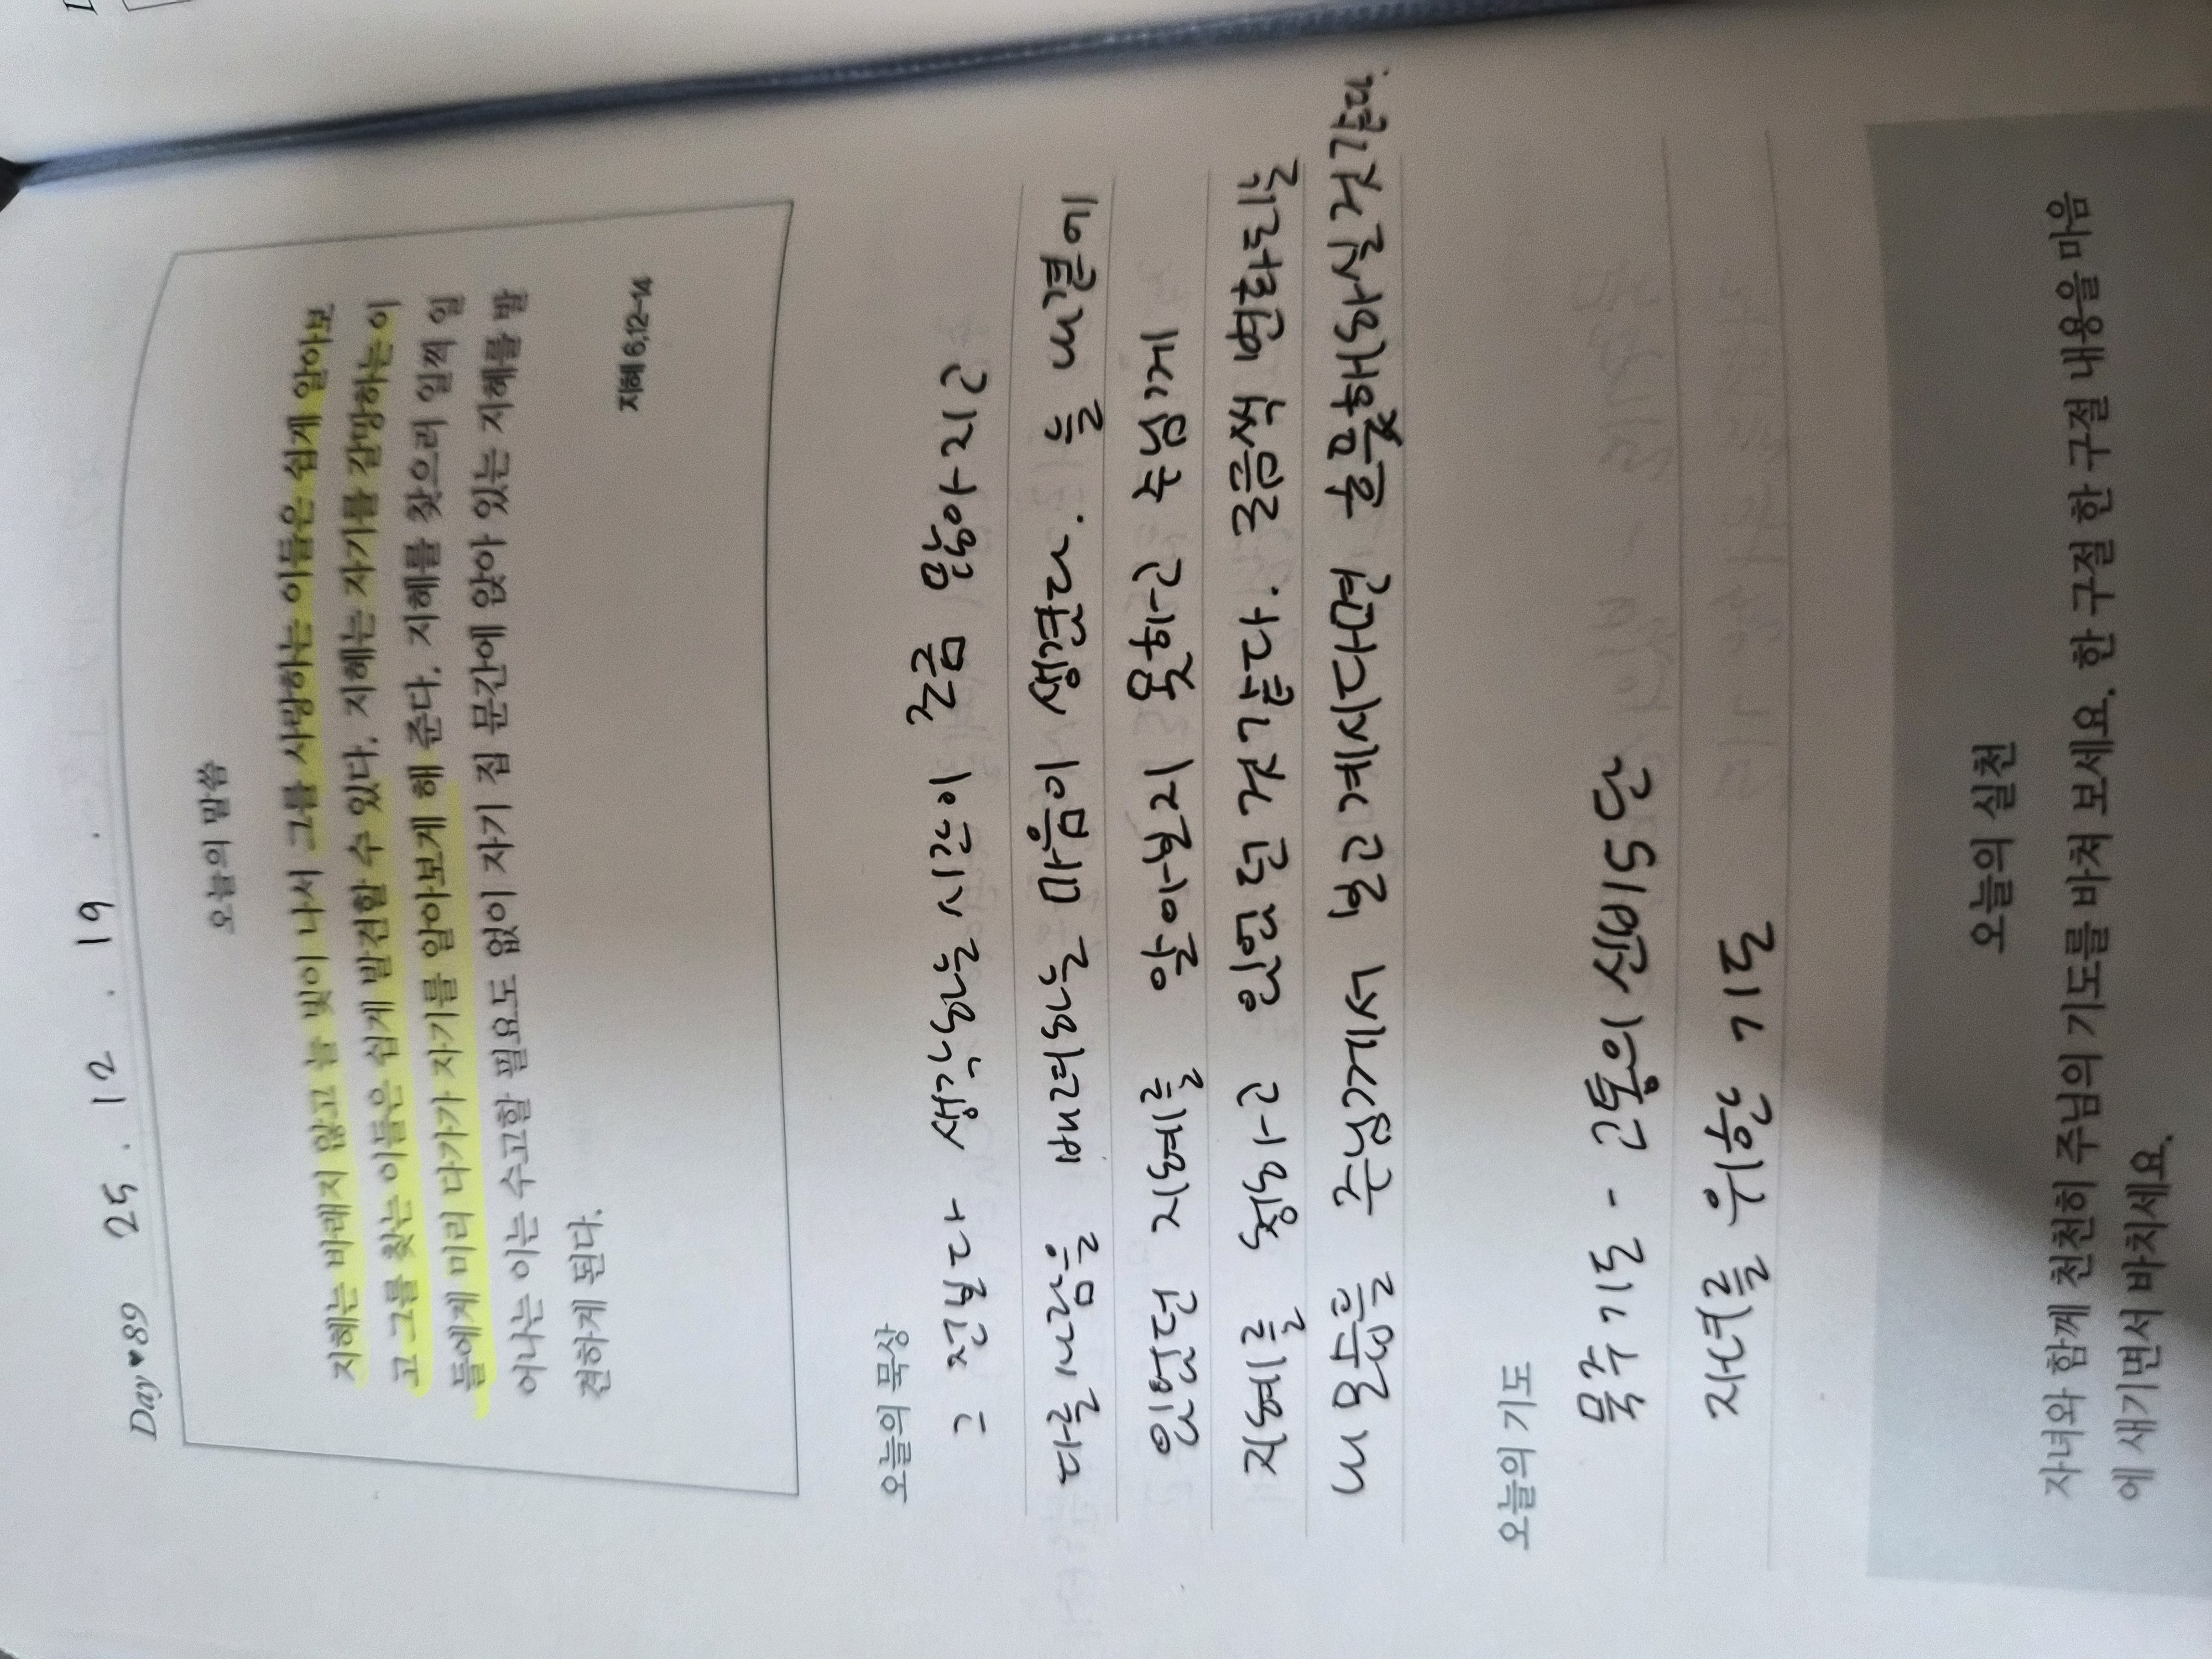 Day♥89 25. 12. 19.
오늘의 말씀
지혜는 바래지 않고 늘 빛이 나서 그를 사랑하는 이들은 쉽게 알아보
고 그를 찾는 이들은 쉽게 발견할 수 있다. 지혜는 자기를 갈망하는 이
들에게 미리 다가가 자기를 알아보게 해 준다. 지혜를 찾으러 일찍 일
어나는 이는 수고할 필요도 없이 자기 집 문간에 앉아 있는 지혜를 발
견하게 된다.
지혜 6,12-14
오늘의 묵상
그 전보다 생각하는 시간이 조금 많아지고
다른 사람을 배려하는 마음이 생겼다. 늘 내곁에
있었던 지혜를 알아보지 못하고 주님께
지혜를 청하고 있었던 것 같다. 조금씩 변화되길
내 모습을 주님께서 보고 계시다면 흐뭇해하실것같다.
오늘의 기도
묵주기도 - 고통의 신비 5단
자녀를 위한 기도
오늘의 실천
자녀와 함께 천천히 주님의 기도를 바쳐 보세요. 한 구절 한 구절 내용을 마음
에 새기면서 바치세요.